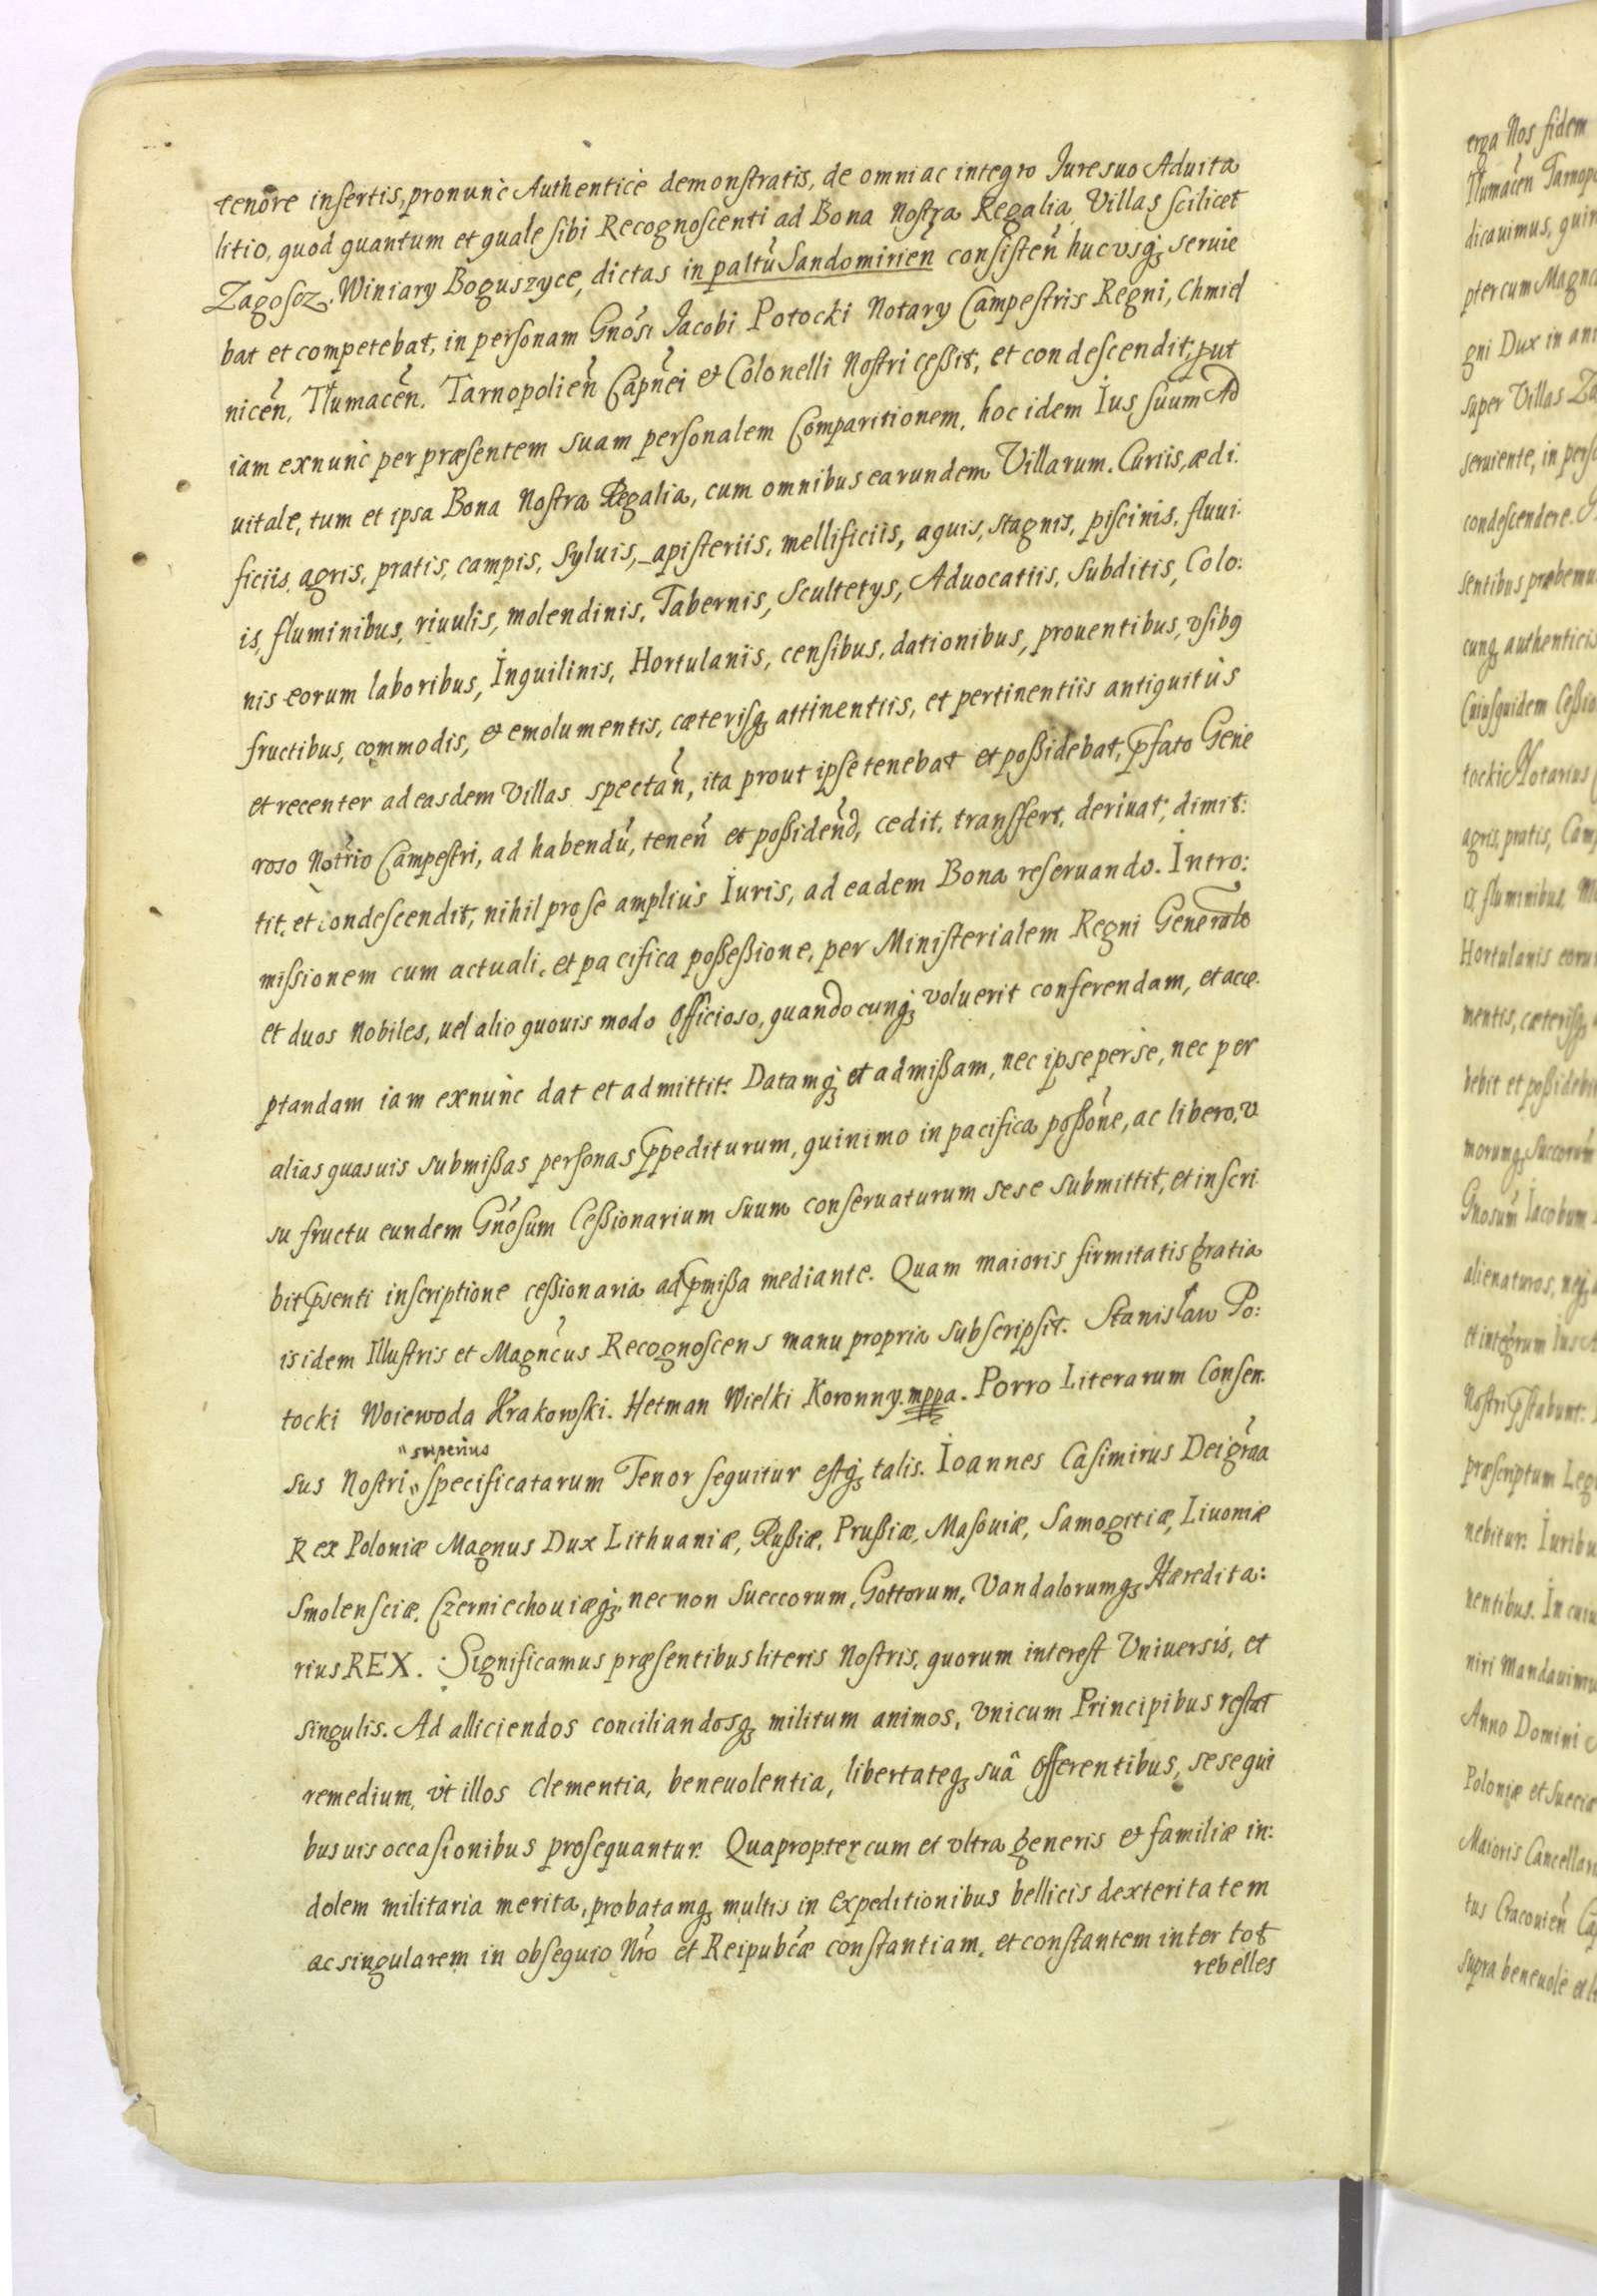 tenore insertis, pronunc Authentice demonstratis, de omni ac integro Jure suo Aduita
litio, quod quantum et quale sibi Recognoscenti ad Bona Nostra Regalia Villas scilicet
Zagoscz. Winiary Boguszyce, dictas in paltu Sandomirien consisten huc vsq; seruie
bat et competebat, in personam Gnosi Jacobi Potocki Notary Campestris Regni, Chmiel
nicen, Tłumacen. Tarnopolien Capnei & Colonelli Nostri ceßit, et condescendit, put
iam exnunc per præsentem suam personalem Comparitionem, hoc idem Ius suum Ad
uitale, tum et ipsa Bona Nostra Regalia, cum omnibus earundem Villarum. Curiis, ædi:
ficiis, agris, pratis, campis, Syluis, apisteriis, mellificiis, aquis, stagnis, piscinis, fluui:
is, fluminibus, riuulis, molendinis, Tabernis, Scultetys, Aduocatiis, Subditis, Colo:
nis eorum laboribus, Inquilinis, Hortulanis, censibus, dationibus, prouentibus, vsibg
fructibus, commodis, & emolumentis, cæterisq; attinentiis, et pertinentiis antiquitùs
et recenter ad easdem Villas spectan, ita prout ipse tenebat et poßidebat, pfato Gene
roso Notrio Campestri, ad habendu, tenen et poßidend, cedit, transfert, deriuat, dimit:
tit, et condescendit, nihil pro se ampliùs Iuris, ad eadem Bona reseruando. Intro:
missionem cum actuali, et pacifica poßeßione, per Ministerialem Regni Generale
et duos Nobiles, uel alio quouis modo Officioso, quandocunq; voluerit conferendam, et acce
ptandam iam exnunc dat et admittit. Datamq; et admißam, nec ipse per se, nec per
alias quasuis submißas personas ppediturum, quinimo in pacifica poßone, ac libero, v
su fructu eundem Gnosum Ceßionarium suum conseruaturum sese submittit, et inscri
bit psenti inscriptione ceßionaria ad pmißa mediante. Quam maioris firmitatis gratia
is idem Illustris et Magncus Recognoscens manu propria subscripsit. Stanisław Po:
tocki Woiewoda Krakowski. Hetman Wielki Koronny. mppa. Porro Literarum Consen
superius
sus Nostri specificatarum Tenor sequitur estq; talis. Ioannes Casimirus Dei graa
Rex Poloniæ Magnus Dux Lithuaniæ, Rußiæ, Prußiæ, Masouiæ, Samogitiæ, Liuoniæ
Smolensciæ, Czerniechouiæq; nec non Sueccorum, Gottorum, Vandalorumq; Hæredita:
rius REX. Significamus præsentibus literis Nostris, quorum interest Vniuersis, et
singulis. Ad alliciendos conciliandosq; militum animos, vnicum Principibus restat
remedium, vt illos clementia, beneuolentia, libertateq; suâ offerentibus, sese qui
busuis occasionibus prosequantur. Quapropter cum et vltra generis & familiæ in:
dolem militaria merita, probatamq; multis in expeditionibus bellicis dexteritatem
ac singularem in obsequio Nro et Reipubcæ constantiam, et constantem inter tot
rebelles
erga Nos fidem
Tłumacen Tarnop
dicauimus, quin
pter cum Magn
gni Dux in an
super Villas Za
seruiente, in pers
condescendere.
sentibus præbemu
cunq; authenticis
Cuiusquidem Ceßio
tocki Notarius
agris, pratis, Cam
fluminibus, M
Hortulanis eoru
mentis, cæterisq;
bebit et poßidebit
morumq; Succorum
Gnosum Iacobum
alienaturos, neq;
et integrum Ius A
Nostri pstabunt.
præscriptum Leg
nebitur. Iuribu
nentibus. In cuiu
niri Mandauimu
Anno Domini
Poloniæ et Sueciæ
Maioris Cancellar
tus Cracouien Cap
supra beneuole et